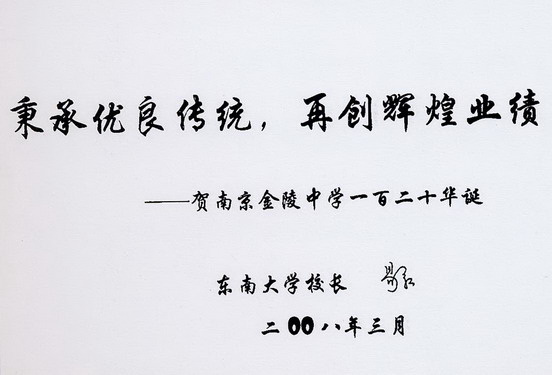 秉承优良传统，再创辉煌业绩
——贺南京金陵中学一百二十华诞
东南大学校长
二〇〇八年三月